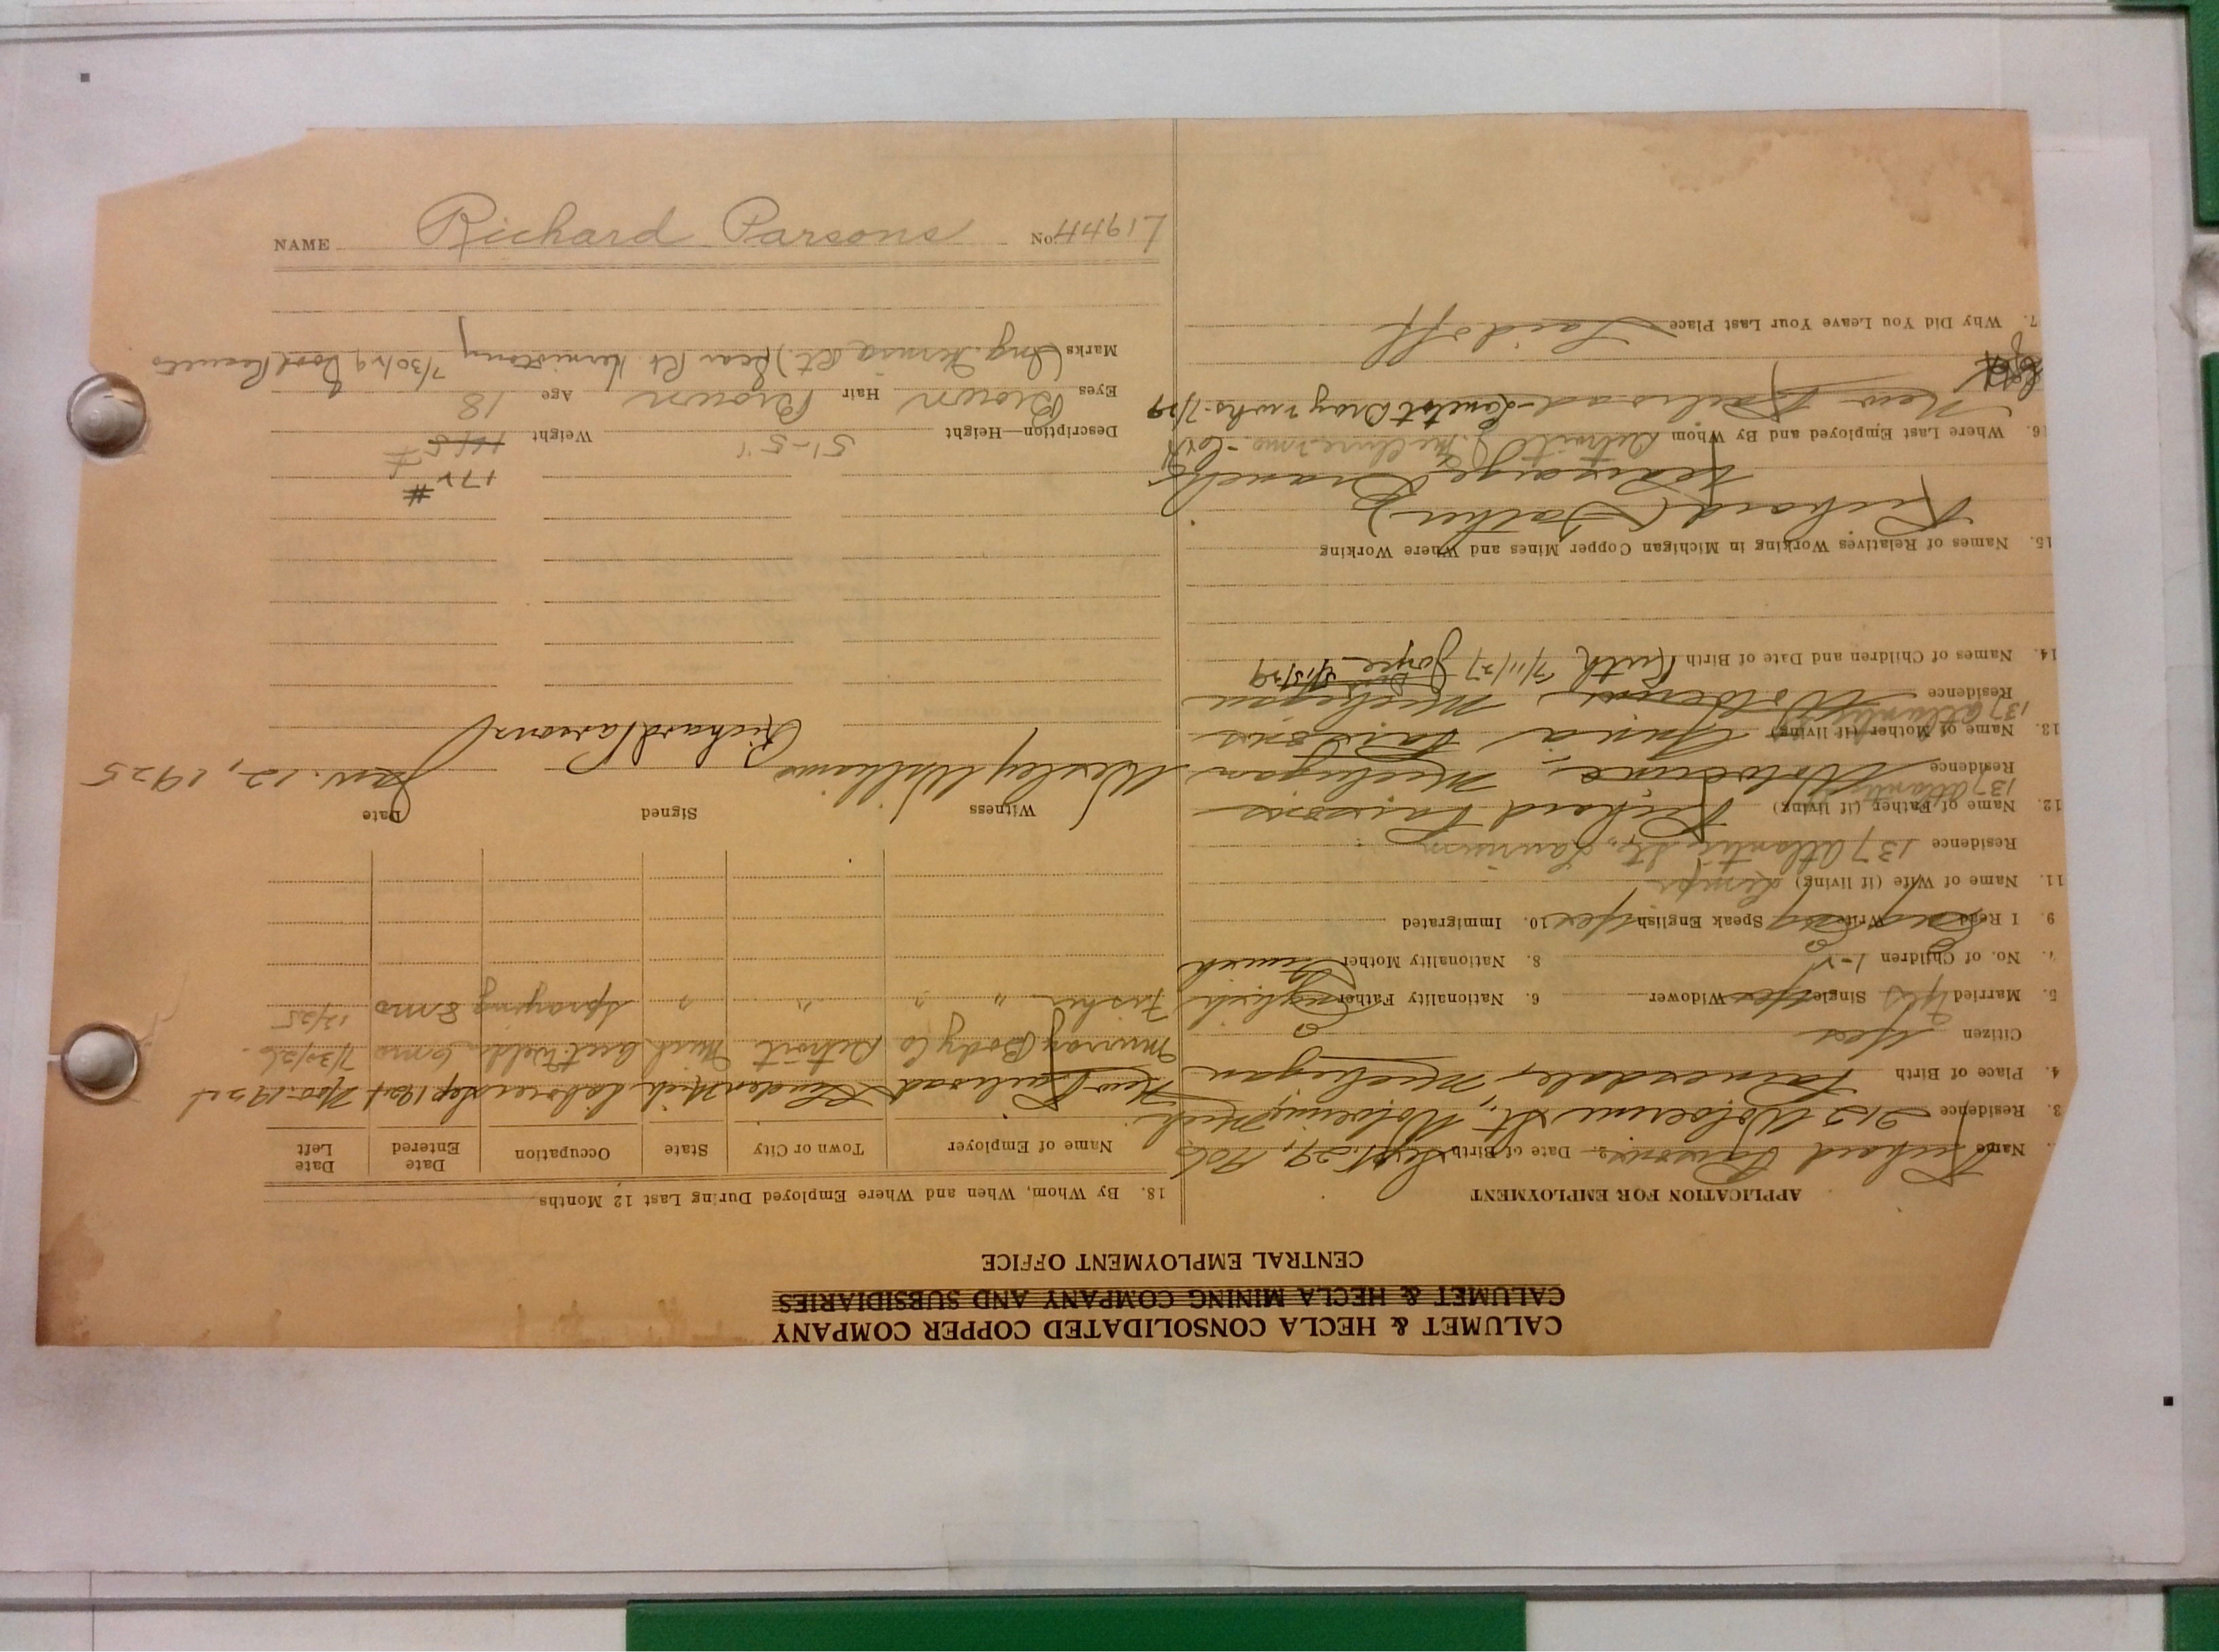 CALUMET & HECLA CONSOLIDATED COPPER COMPANY
CALUMET & HECLA MINING COMPANY AND SUBSIDIARIES
CENTRAL EMPLOYMENT OFFICE
APPLICATION FOR EMPLOYMENT
Name Richard Parsons 2. Date of Birth Sept. 29, 1906
3. Residence 212 Wolverine St., Wolverine, Mich.
4. Place of Birth Painesdale, Michigan
Citizen Yes
5. Married Yes Single Yes Widower 6. Nationality Father English
No. of Children 1-2 8. Nationality Mother Finnish
9. I Read Write Speak English Yes 10. Immigrated
11. Name of Wife (if living)
Residence 137 Atlantic St., Laurium
12. Name of Father (if living) Richard Parsons
137 Atlantic
Residence Wolverine, Michigan
13. Name of Mother (if living) Parsons
137 Atlantic
Residence Wolverine, Michigan
14. Names of Children and Date of Birth Ruth 7/11/27 Joyce
15. Names of Relatives Working in Michigan Copper Mines and Where Working
Richard (Father)
Kearsarge Branch
16. Where Last Employed and By Whom Detroit
New Railroad
7. Why Did You Leave Your Last Place Laid off
18. By Whom, When and Where Employed During Last 12 Months
Name of Employer Town or City State Occupation Date Entered Date Left
New Railroad Mich Laborer Sep 1924 Nov. 1924
Murray Body Co Detroit Mich Weld. 6 mo 7/30/26
Fisher " " " " Spraying 8 mo 12/25
Witness Signed Date
Wesley Williams Richard Parsons Jan. 12, 1925
172 #
Description—Height 5'-5" Weight
Eyes Brown Hair Brown Age 18
Marks (Ing. Hernia Rt.) Scar Rt Herniotomy 7/30/29 Good Results
NAME Richard Parsons No. 44917